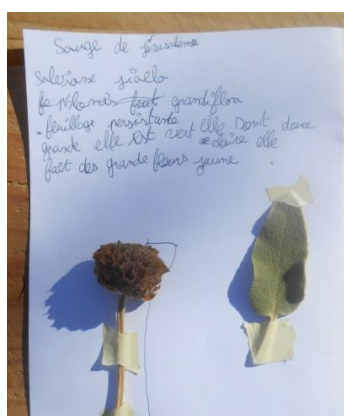 Sauge de jérusalème
salerione jialo
be philomes fruit grandiflora
- feuillage persistante
grande elle est vert elle sont douce
claire elle
fait des grande fleurs jaune